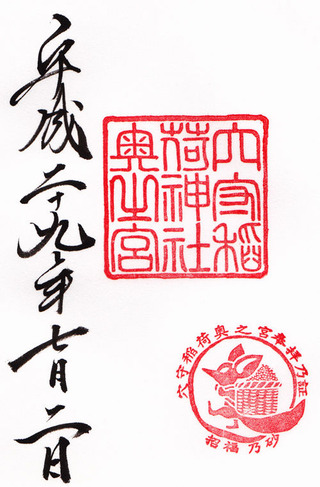 穴守稲
荷神社
奥之宮
穴守稲荷奥之宮奉拝乃証
招福乃砂
平成二十九年七月二日